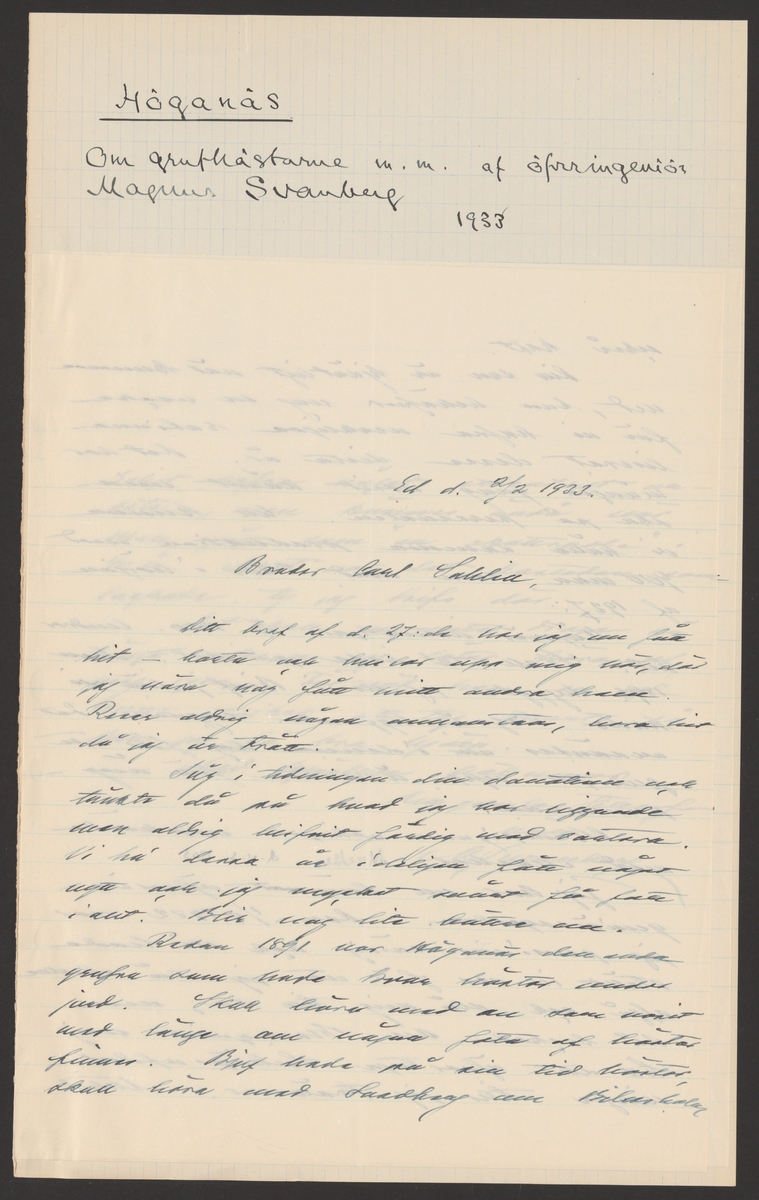 Höganäs
Om grufhästarne m.m. af öfveringeniör
Magnus Svanberg
1933
Ed d. 2/2 1933.
Broder Carl Sahlin,
Ditt bref af d. 27:de har jag nu fått
hit – borta och hvilar upp mig här, där
jag nära nog fått mitt andra hem.
Reser aldrig någon annanstans, bara hit
då jag är trött.
Såg i tidningen din donation och
tänkte då på hvad jag har liggande
men aldrig blifvit färdig med
Vi ha dessa år fått något
nytt och jag mycket svårt få fatt
i allt. Blir nog lite bättre nu.
Redan 1891 var Höganäs den enda
grufva som hade hästar under
jord. Skall höra med en som varit
med länge om några foto af hästar
finnas. Bjuf hade på sin tid hästar,
skall höra med Sandberg om Billesholm